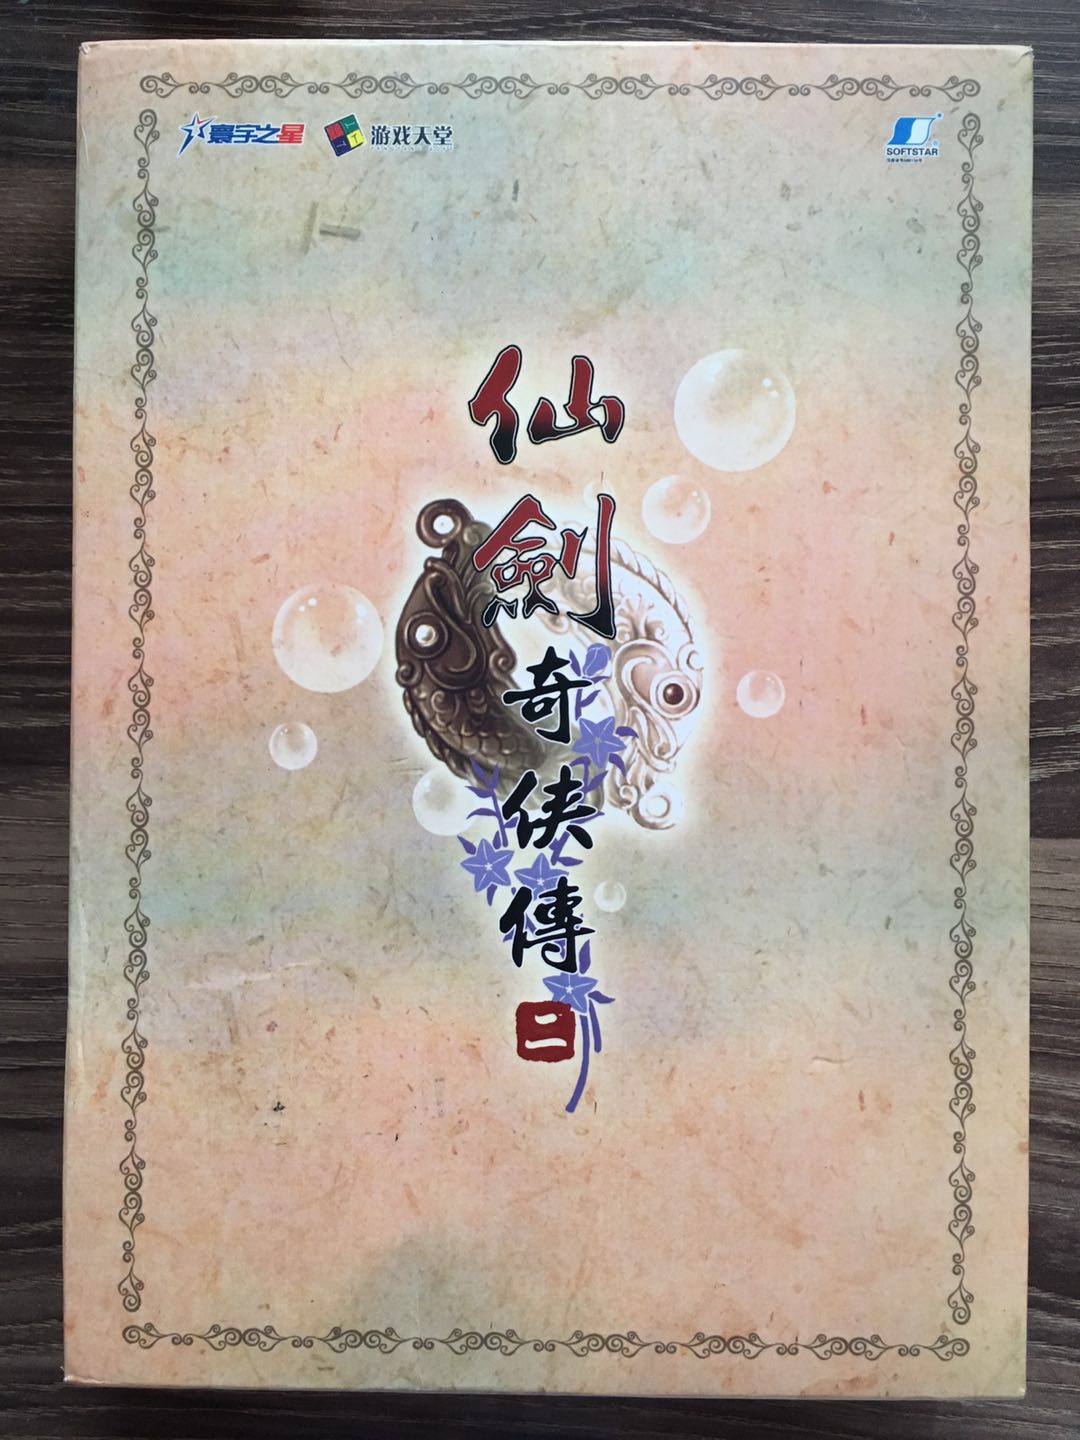 寰宇之星
游戏天堂
SOFTSTAR
仙
劍
奇
俠
傳
二